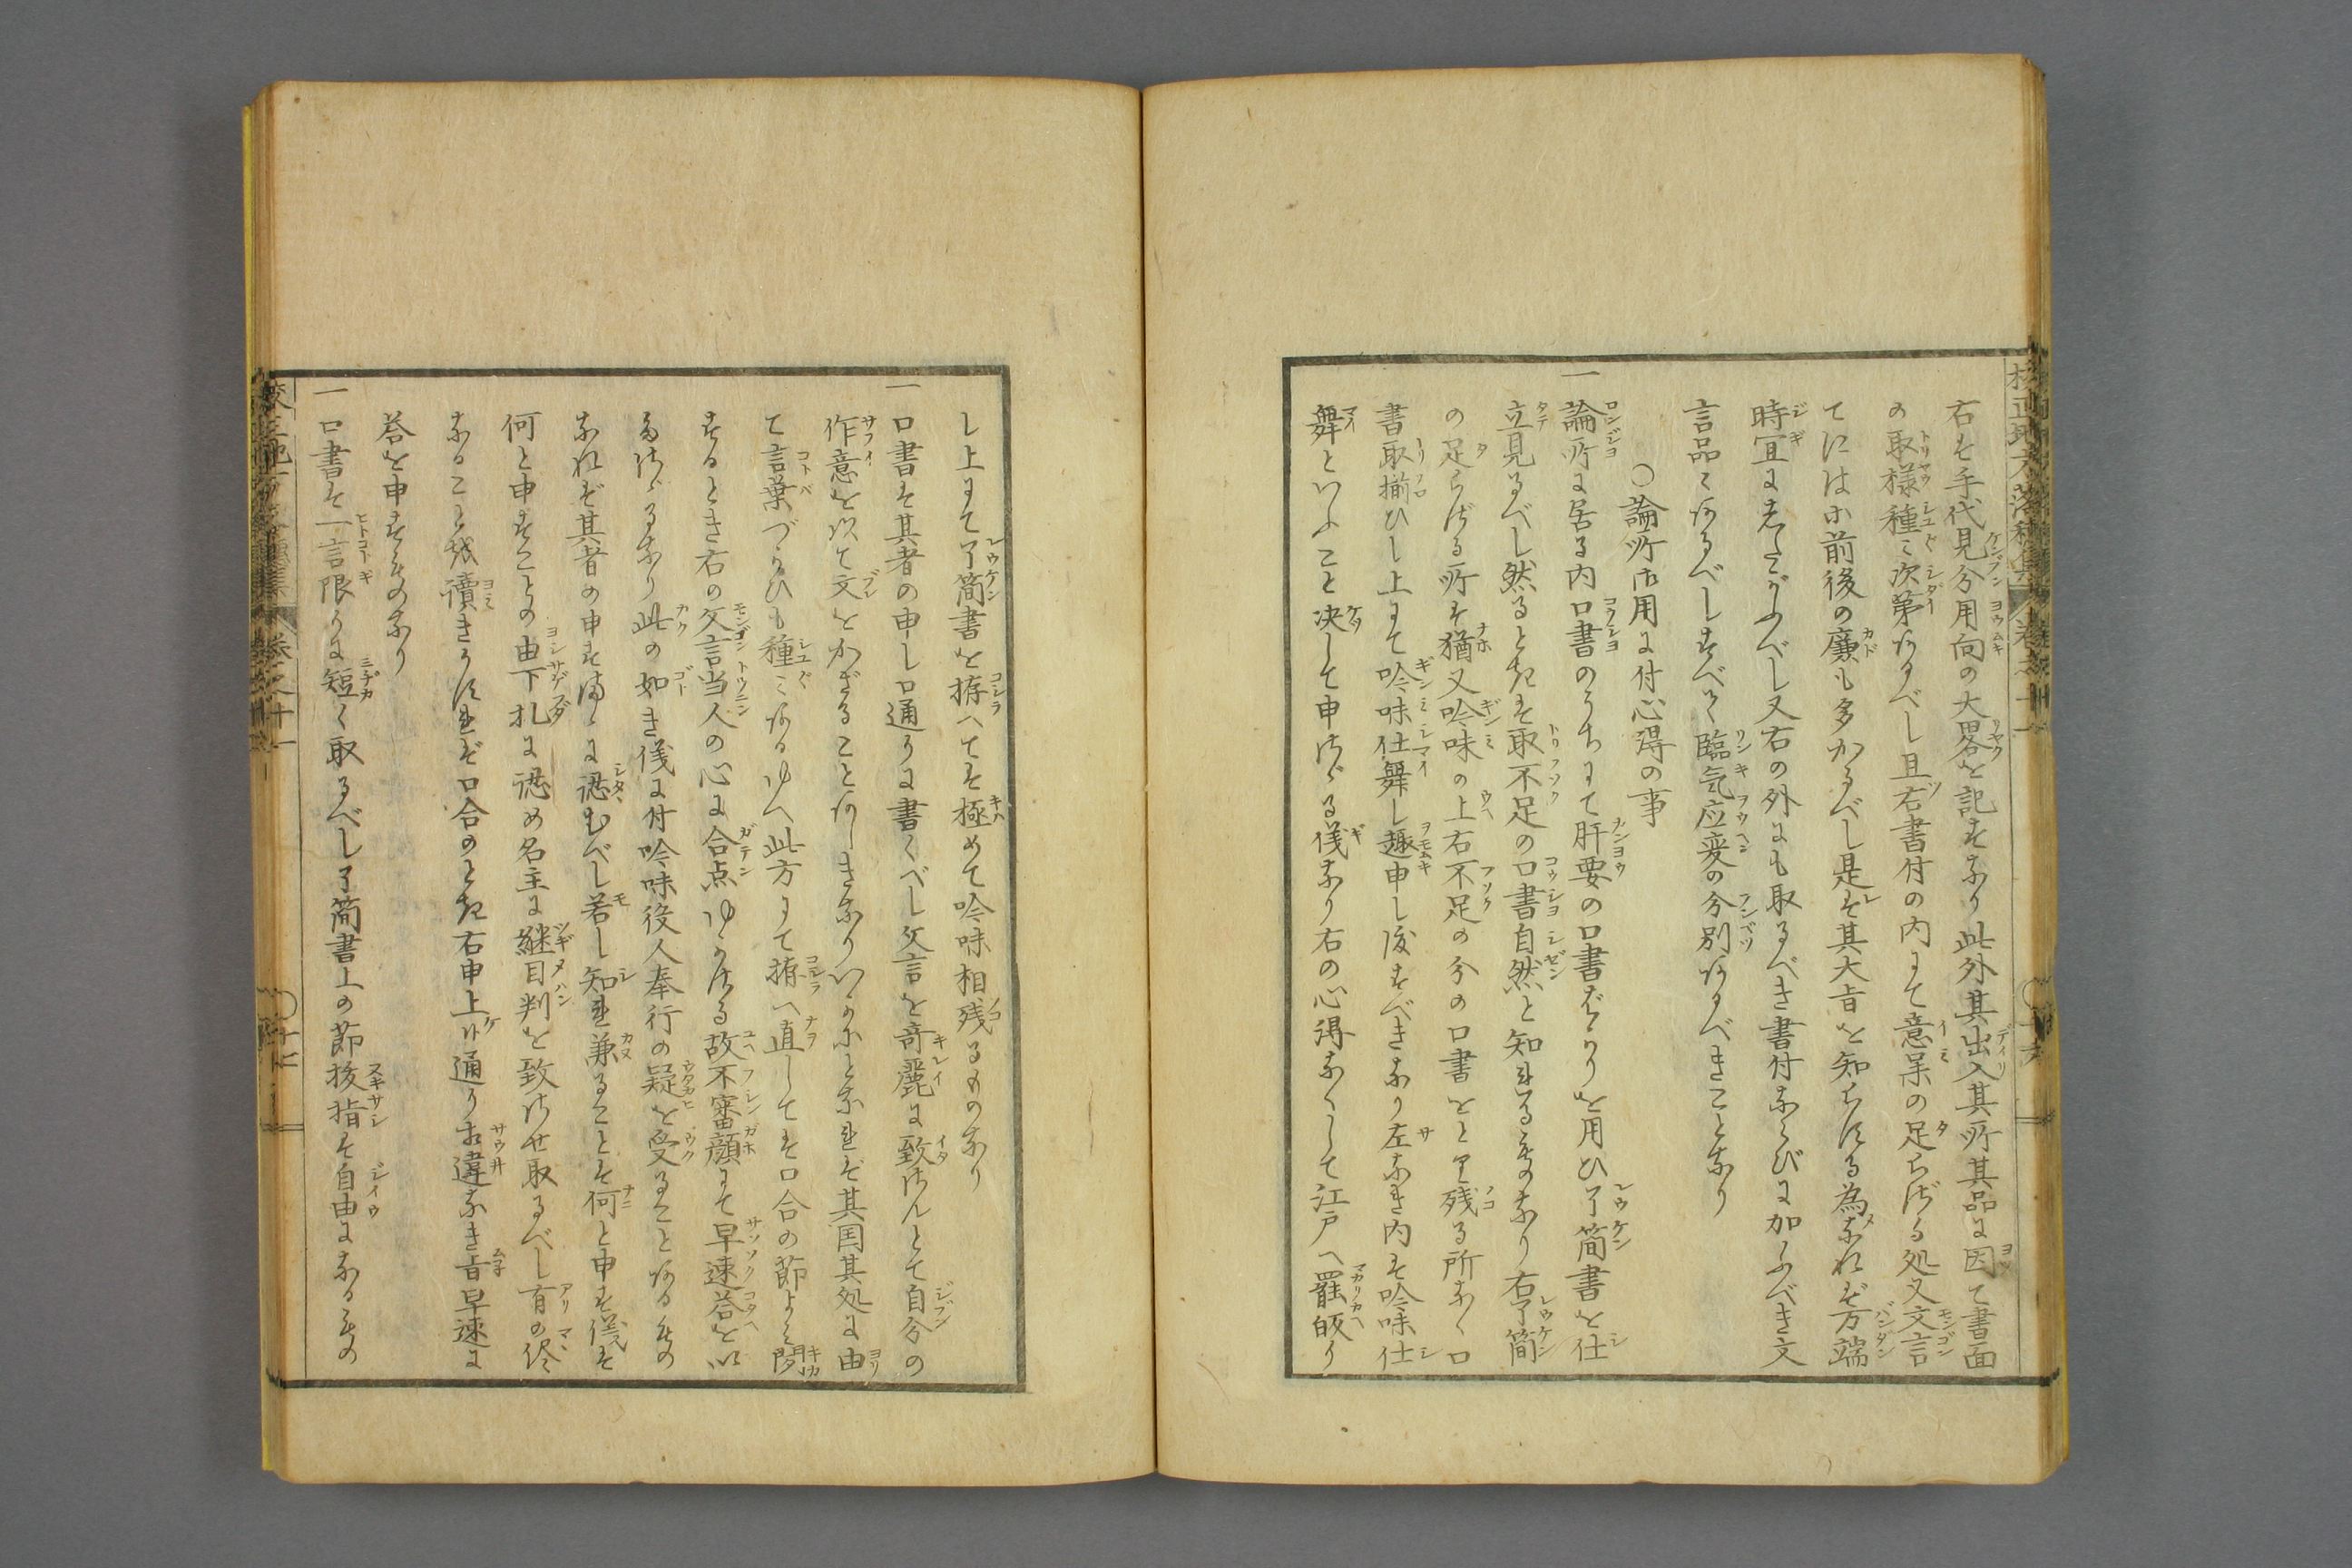 右は手代見分用向の大畧を記すなり此外其出入其所其品に因て書面
の取様種々次第あるべし且右書付の内にて意味の足らざる処又文言
てにはに前後の廉も多かるべし是は其大旨を知らする為なれば万端
時宜にしたがふべし又右の外にも取るべき書付ならびに加ふべき文
言品々あるべしすべて臨気応変の分別あるべきことなり
○論所御用に付心得の事
一論所に居る内口書のうちにて肝要の口書ばかりを用ひ了簡書を仕
立見るべし然るときは取不足の口書自然と知れるものなり右了簡
の足らざる所は猶又吟味の上右不足の分の口書をとり残る所なく口
書取揃ひし上にて吟味仕舞し趣申し渡すべきなり左なき内は吟味仕
舞といふこと決して申さゞる儀なり右の心得なくして江戸へ罷皈り
し上にて了簡書を拵へては極めて吟味相残るものなり
一口書は其者の申し口通りに書くべし文言を奇麗に致さんとて自分の
作意を以て文をかざることあしきなりいかにとなれば其国其処に由
て言葉づかひも種々あるゆへ此方にて拵へ直しては口合の節よみ聞
するとき右の文言当人の心に合点ゆかざる故不審顔にて早速答を以
たさゞるなり此の如き儀に付吟味役人奉行の疑を受ることあるもの
なれば其者の申すまゝに認むべし若し知れ兼ることは何と申す儀は
何と申すことの由下札に認め名主に継目判を致させ取るべし有の侭
なること故讀きかすれば口合のとき右申上ケ通り相違なき旨早速に
答を申すものなり
一口書は一言限りに短く取るべし了簡書上の節抜指は自由になるもの